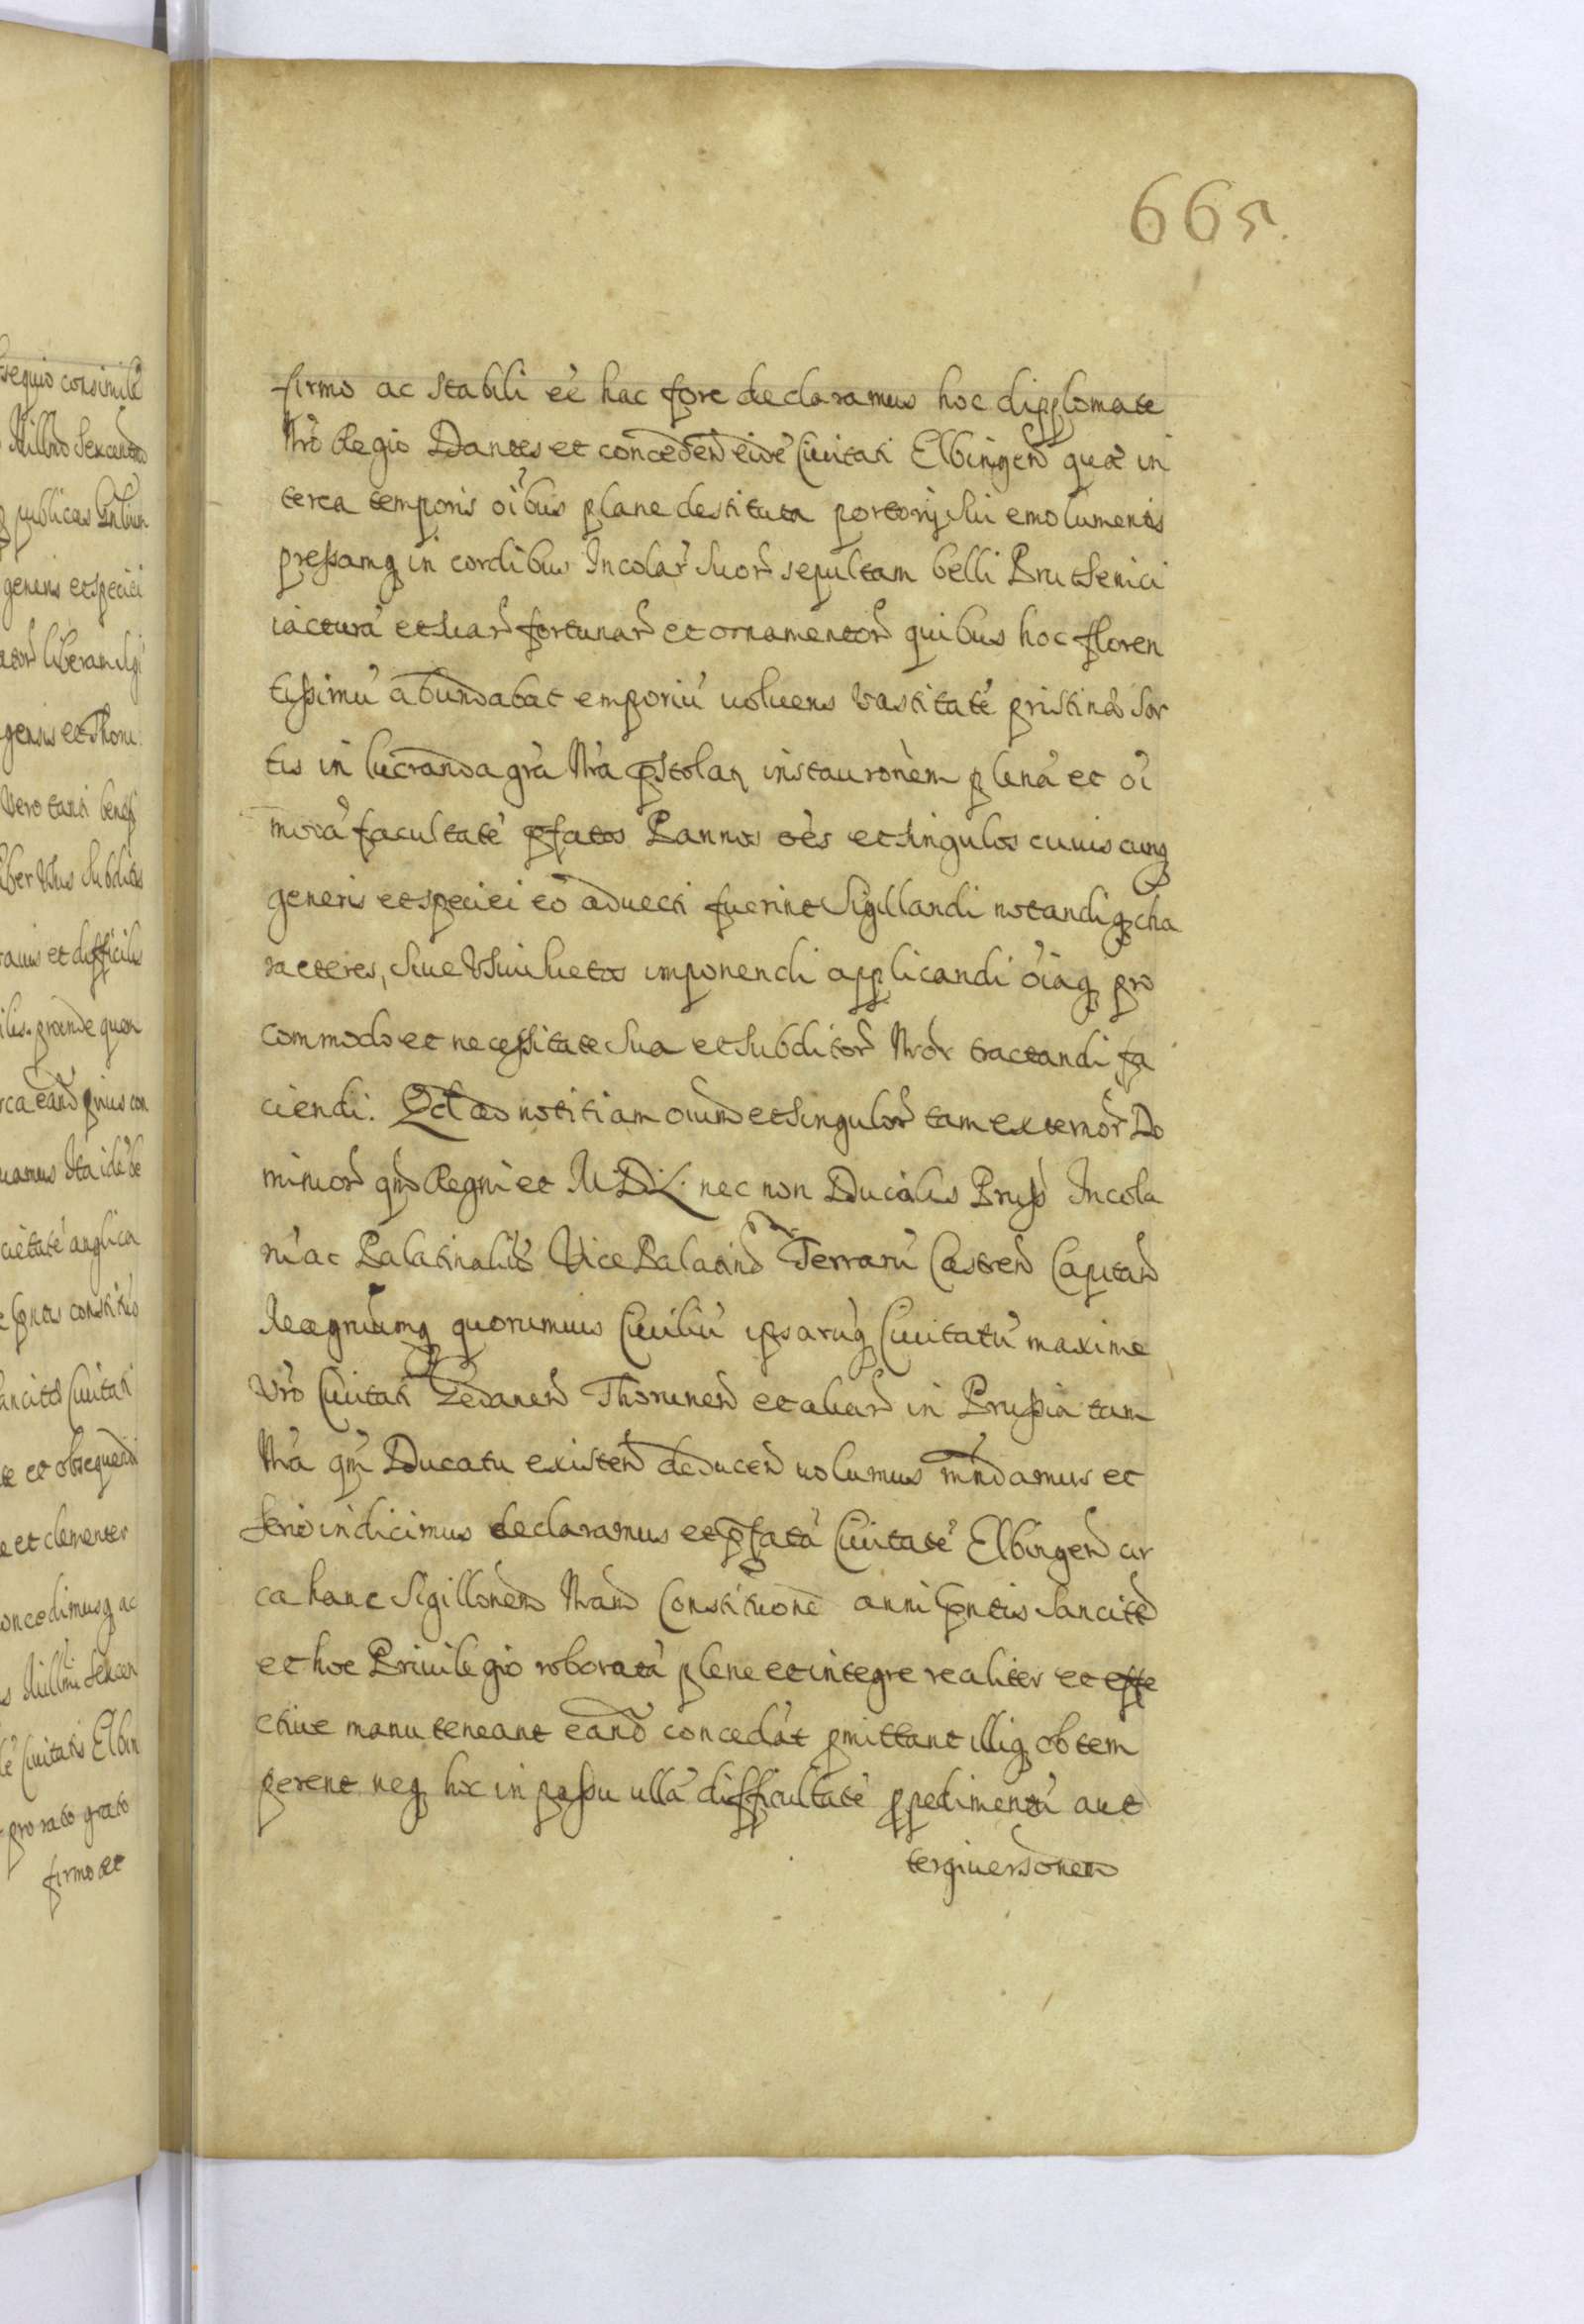 665.
firmo ac stabili eē hac fore declaramus hoc dipplomate
Nrō Regio Dantes et conceden̄ eidē Ciuitati Elbingen̄ quæ in
terea temporis oībus plane destituta portorij sui emolumentis
pressamq in cordibus Incolar̄ suor̄ sepultam belli Prutsenici
iacturā et suar̄ fortunar̄ et ornamentor̄ quibus hoc floren
tissimū abundabat emporiū uoluens vastitatē pristinæ sor
tis in lucranda grā Nrā instauronēm plenā et oī
modā facultatē pfatos Pannos oēs et singulos cuiuscunq
generis et speciei eō aduecti fuerint Sigillandi notandiq cha
racteres, siue imponendi applicandi oīaq pro
commodo et necessitate sua et subditor̄ Nror̄ tractandi fa
ciendi. Qd ad notitiam oium̄ et singulor̄ tam externor̄ Do
minior̄ qm̄ Regni et M. D. L. nec non Ducalis Pruss̄ Incola
rū ac Palatinalib̄ Vice Palatin̄ Terrarū Castren̄ Capitan̄
quorumuis Ciuiliū ipsarūq Ciuitatū maxime
Vrō Ciuitati Gedanen̄ Thorunen̄ et aliar̄ in Prussia tam
Nrā qm̄ Ducatu existen̄ deducen̄ uolumus mn̄damus et
serio indicimus declaramus et pfatā Ciuitatē Elbingen̄ cir
ca hanc Sigillonem̄ Nram̄ Constitūone anni pn̄tis sancitā
et hoc Priuilegio roboratā plene et integre realiter et effe
ctiue manuteneant eand̄ concedāt pmittant illiq obtem
perent neq hoc in passu ullā difficultatē ppedimentū aut
tergiuersonem̄
sequio consimilē
Millmo Sexcentmo
publicas
generis et speciei
liberam
gensis et Thoru
Vero tanti benefi
liber Usus Subditis
rauis et difficilis
ilis. proinde quon
rca eand̄ prius con
uamus Ita idē de
cietatē anglica
pntis constitūo
ancitæ Ciuitati
te et obsequendi
e et clementer
concedimusq ac
s Millmi Sexcen
lē Ciuitatis Elbin
pro rato grato
firmo et